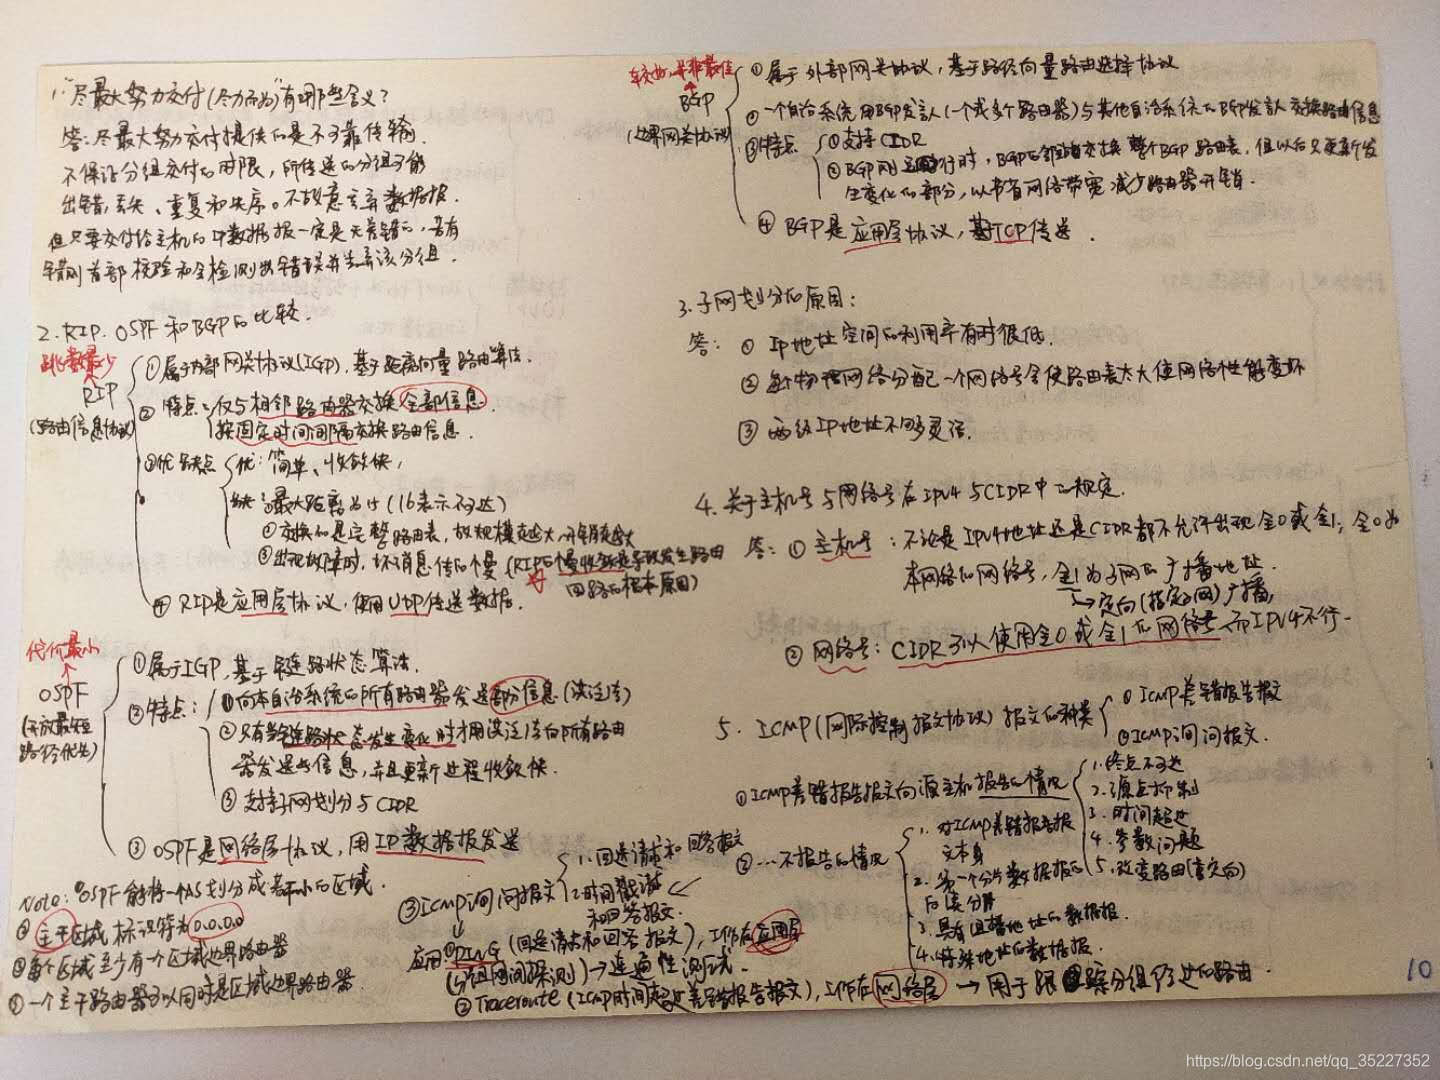 1. "尽最大努力交付(尽力而为)"有哪些含义?
答:尽最大努力交付提供的是不可靠传输.
不保证分组交付的时限,所传送的分组可能
出错,丢失、重复和失序。不故意丢弃数据报.
但只要交付给主机的IP数据报一定是无差错的,若有
错则首部校验和会检测出错误并丢弃该分组.
2. RIP. OSPF和BGP的比较.
跳数最少
RIP
(路由信息协议)
①属于内部网关协议(IGP), 基于距离向量路由算法.
② 特点: 仅与相邻路由器交换全部信息.
按固定时间间隔交换路由信息.
③优缺点
优: 简单、收敛快,
缺: 最大距离为15 (16表示不可达)
②交换的是完整路由表, 故规模越大,开销越大
③出现故障时, 坏消息传的慢 (RIP的慢收敛是导致发生路由
回路的根本原因)
④ RIP是应用层协议, 使用UDP传送数据.
代价最小
OSPF
(开放最短
路径优先)
①属于IGP, 基于链路状态算法.
②特点: ①向本自治系统的所有路由器发送部分信息 (洪泛法)
②只有当链路状态发生变化时才用洪泛法向所有路由
器发送此信息, 并且更新过程收敛快.
③支持子网划分与CIDR
③ OSPF是网络层协议, 用IP数据报发送
Note: ①OSPF能将一个AS划分成若干小的区域.
② 主干区域标识符为0.0.0.0
③每个区域至少有一个区域边界路由器
④一个主干路由器可以同时是区域边界路由器.
较好,非最佳
BGP
(边界网关协议)
①属于外部网关协议, 基于路径向量路由选择协议
②一个自治系统用BGP发言人(一个或多个路由器)与其他自治系统的BGP发言人交换路由信息
③特点 ①支持CIDR
②BGP刚运行时, BGP的邻站交换整个BGP路由表, 但以后只更新发
生变化的部分, 以节省网络带宽减少路由器开销.
④ BGP是应用层协议, 基于TCP传送.
3. 子网划分的原因:
答: ① IP地址空间的利用率有时很低.
② 每个物理网络分配一个网络号会使路由表太大使网络性能变坏
③ 两级IP地址不够灵活.
4. 关于主机号与网络号在IPV4与CIDR中的规定.
答: ① 主机号: 不论是IPV4地址还是CIDR都不允许出现全0或全1; 全0为
本网络的网络号, 全1为子网的广播地址.
→定向(指定子网)广播,
② 网络号: CIDR可以使用全0或全1的网络号,而IPV4不行.
5. ICMP (网际控制报文协议) 报文的种类
① ICMP差错报告报文
②ICMP询问报文.
①ICMP差错报告报文向源主机报告的情况
1. 终点不可达
2. 源点抑制
3. 时间超过
4. 参数问题
5. 改变路由(重定向)
②...不报告的情况
1. 对ICMP差错报告报
文本身
2. 第一个分片数据报的
后续分片
3. 具有组播地址的数据报.
4. 特殊地址的数据报.
③ICMP询问报文
1. 回送请求和回答报文
2. 时间戳请求
和回答报文.
应用
①PING (回送请求和回答报文), 工作在应用层
(分组网间探测)→连通性测试.
②Traceroute (ICMP时间超过差错报告报文), 工作在网络层 → 用于跟踪分组经过的路由.
10
https://blog.csdn.net/qq_35227352